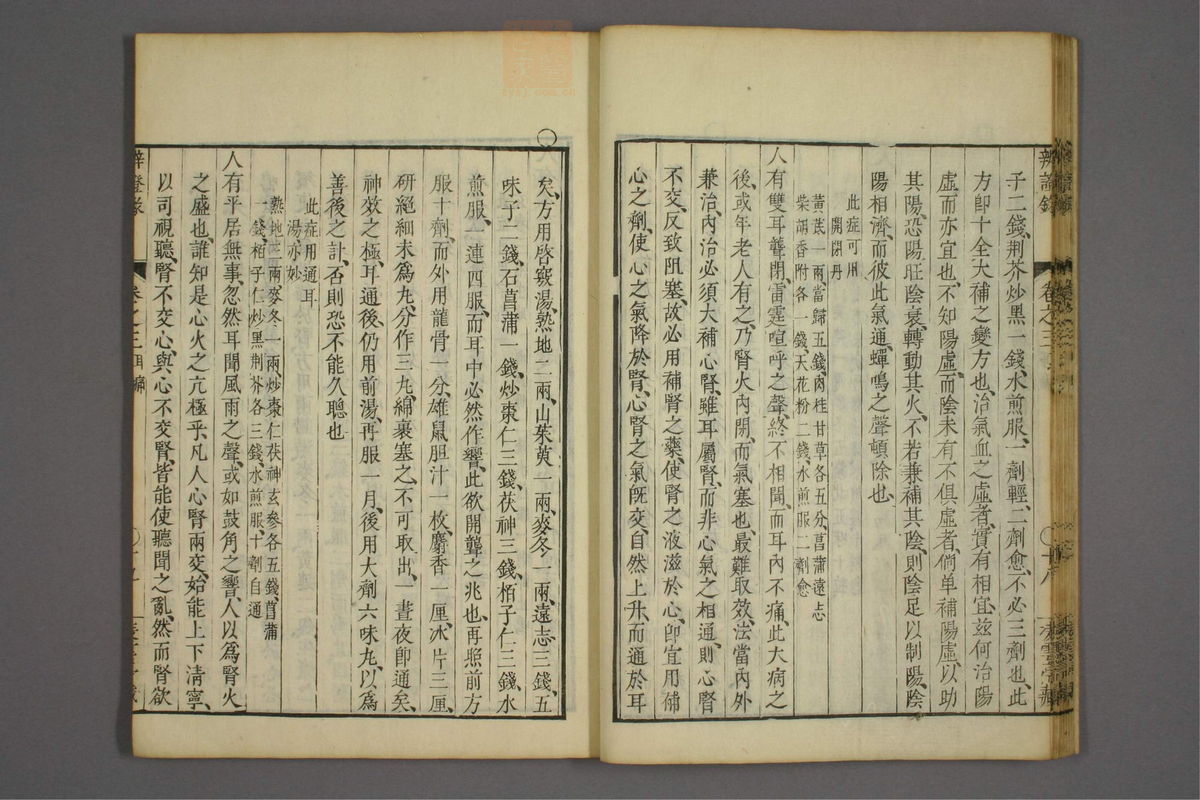 子二錢荆芥炒黑一錢水煎服一劑輕二劑愈不必三劑也此
方卽十全大補之變方也治氣血之虛者實有相宜玆何治陽
虛而亦宜也不知陽虛而陰未有不俱虛者倘单補陽虛以助
其陽恐陽旺陰衰轉動其火不若兼補其陰則陰足以制陽陰
陽相濟而彼此氣通蟬鳴之聲頓除也
此症可用
開閉丹
黃芪一兩當歸五錢肉桂甘草各五分菖蒲遠志
柴胡香附各一錢天花粉二錢水煎服二劑愈
人有雙耳聾閉雷霆喧呼之聲終不相聞而耳内不痛此大病之
後或年老人有之乃腎火内閉而氣塞也最難取效法當内外
兼治内治必須大補心腎雖耳屬腎而非心氣之相通則心腎
不交反致阻塞故必用補腎之藥使腎之液滋於心卽宜用補
心之劑使心之氣降於腎心腎之氣旣交自然上升而通於耳
矣方用啓竅湯熟地二兩山茱萸一兩麥冬一兩遠志三錢五
味子二錢石菖蒲一錢炒棗仁三錢茯神三錢栢子仁三錢水
煎服一連四服而耳中必然作響此欲開聾之兆也再照前方
服十劑而外用龍骨一分雄鼠胆汁一枚麝香一厘冰片三厘
研絕細末爲丸分作三丸綿裹塞之不可取出一晝夜卽通矣
神效之極耳通後仍用前湯再服一月後用大劑六味丸以爲
善後之計否則恐不能久聰也
此症用通耳
湯亦妙
熟地三兩麥冬一兩炒棗仁茯神玄參各五錢菖蒲
一錢栢子仁炒黑荆芥各三錢水煎服十劑自通
人有平居無事忽然耳聞風雨之聲或如鼓角之響人以爲腎火
之盛也誰知是心火之亢極乎凡人心腎兩交始能上下清寧
以司視聽腎不交心與心不交腎皆能使聽聞之亂然而腎欲